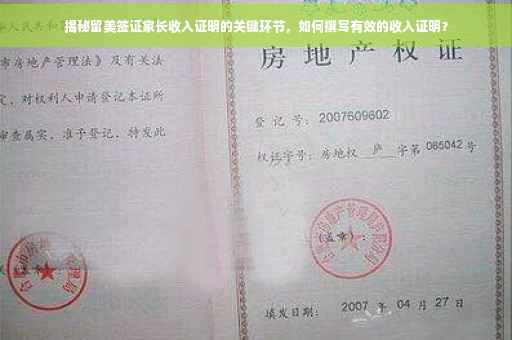 揭秘留美签证家长收入证明的关键环节，如何撰写有效的收入证明？
人民共和
市房地产管理法》及有关法
定，对权利人申请登记本证所
审查属实，准予登记，特发此
房地产权证
登记号：2007609602
权证字号：房地权 庐 字第 085042 号
(盖章)：
填发日期：2007 年 04 月 27 日